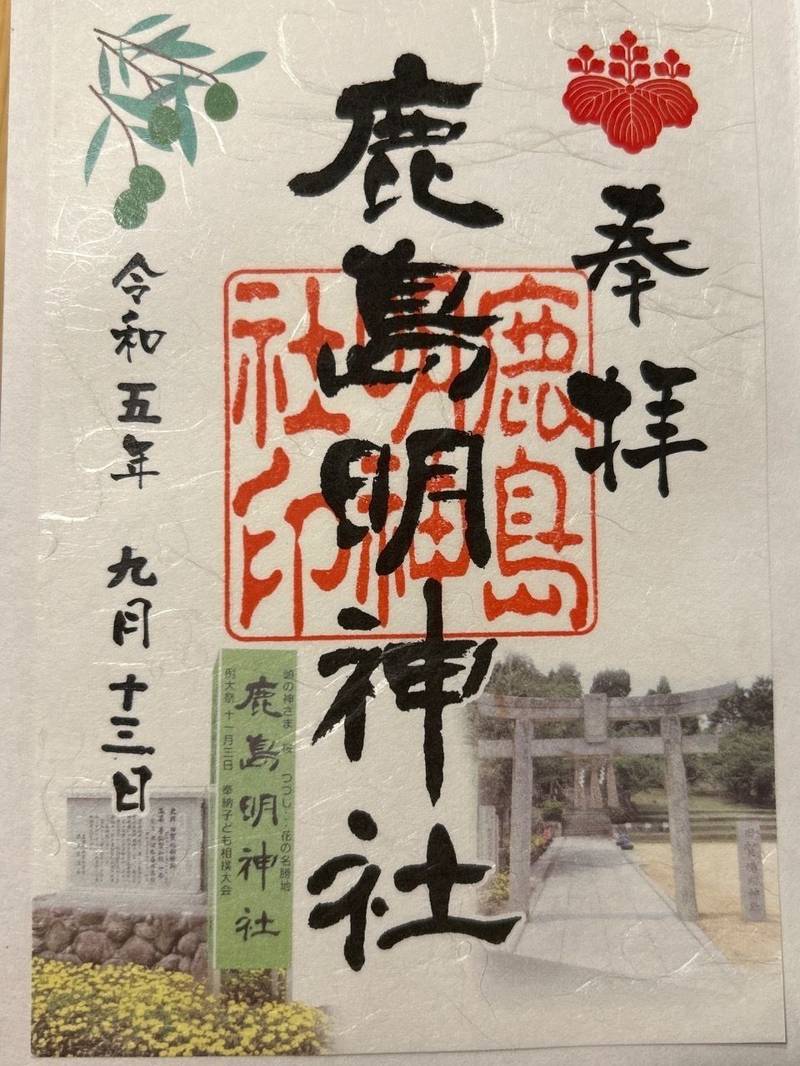 奉拝
鹿島明神社
鹿島
明神
社印
令和五年 九月十三日
の神さま 桜 つつじ 花の名勝地
鹿島明神社
例大祭 十一月三日 奉納子ども相撲大会